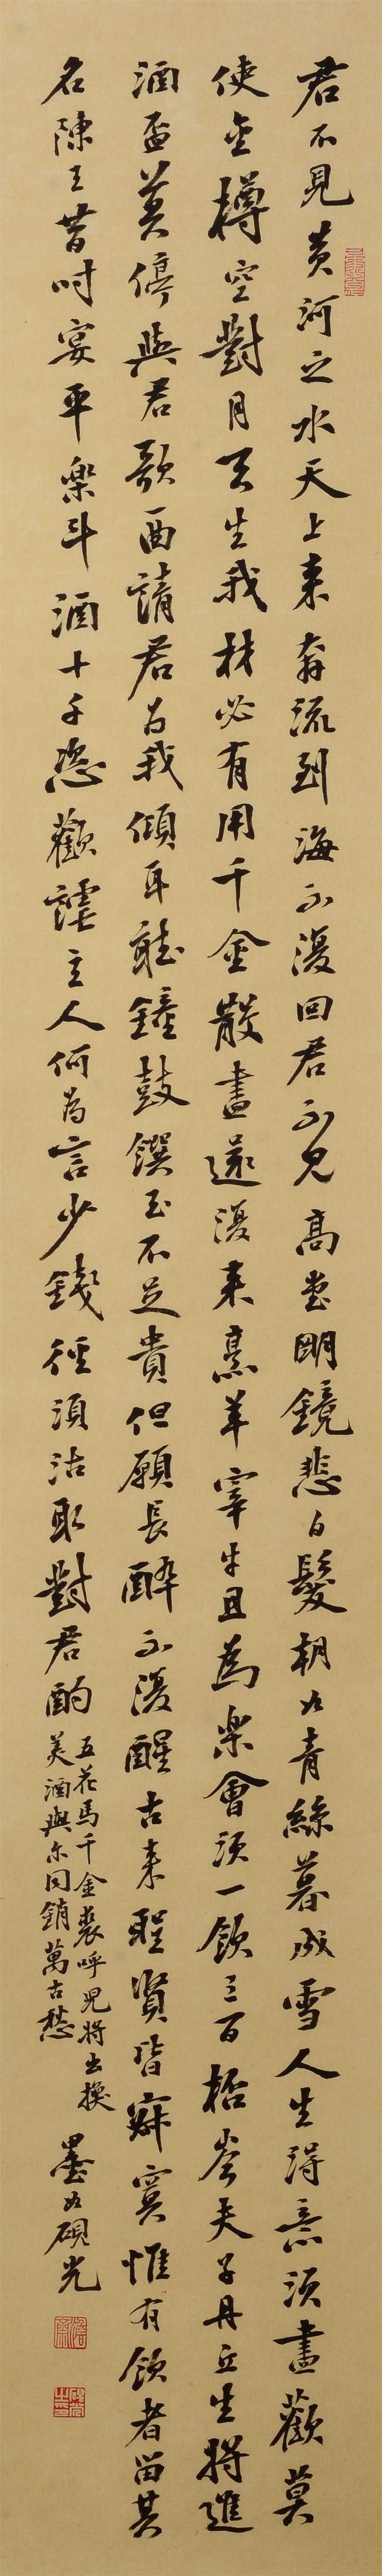 君不見黃河之水天上來奔流到海不復回君不見高堂明鏡悲白髮朝如青絲暮成雪人生得意須盡歡莫
使金樽空對月天生我材必有用千金散盡還復來烹羊宰牛且為樂會須一飲三百杯岑夫子丹丘生將進
酒盃莫停與君歌一曲請君為我傾耳聽鐘鼓饌玉不足貴但願長醉不復醒古來聖賢皆寂寞惟有飲者留其
名陳王昔時宴平樂斗酒十千恣歡謔主人何為言少錢徑須沽取對君酌
五花馬千金裘呼兒將出換
美酒與尔同銷萬古愁
墨如硯光